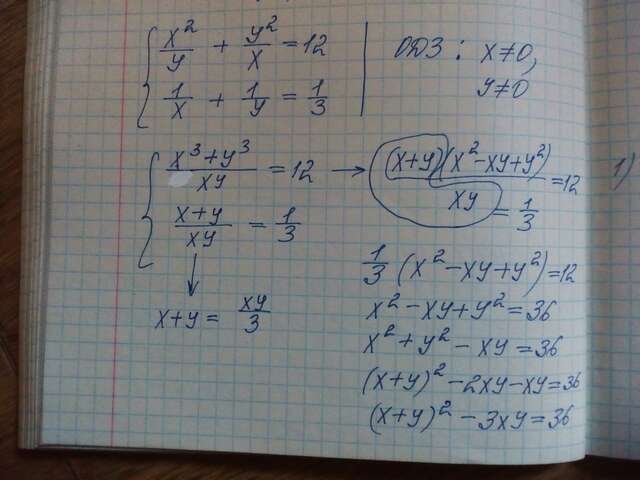 { x²/y + y²/x = 12 | ОДЗ: x≠0,
1/x + 1/y = 1/3 y≠0
{ (x³+y³)/xy = 12 → (x+y)(x²-xy+y²)/xy = 12 1)
(x+y)/xy = 1/3 = 1/3
↓
x+y = xy/3
1/3 (x²-xy+y²)=12
x²-xy+y²=36
x²+y²-xy=36
(x+y)²-2xy-xy=36
(x+y)²-3xy=36